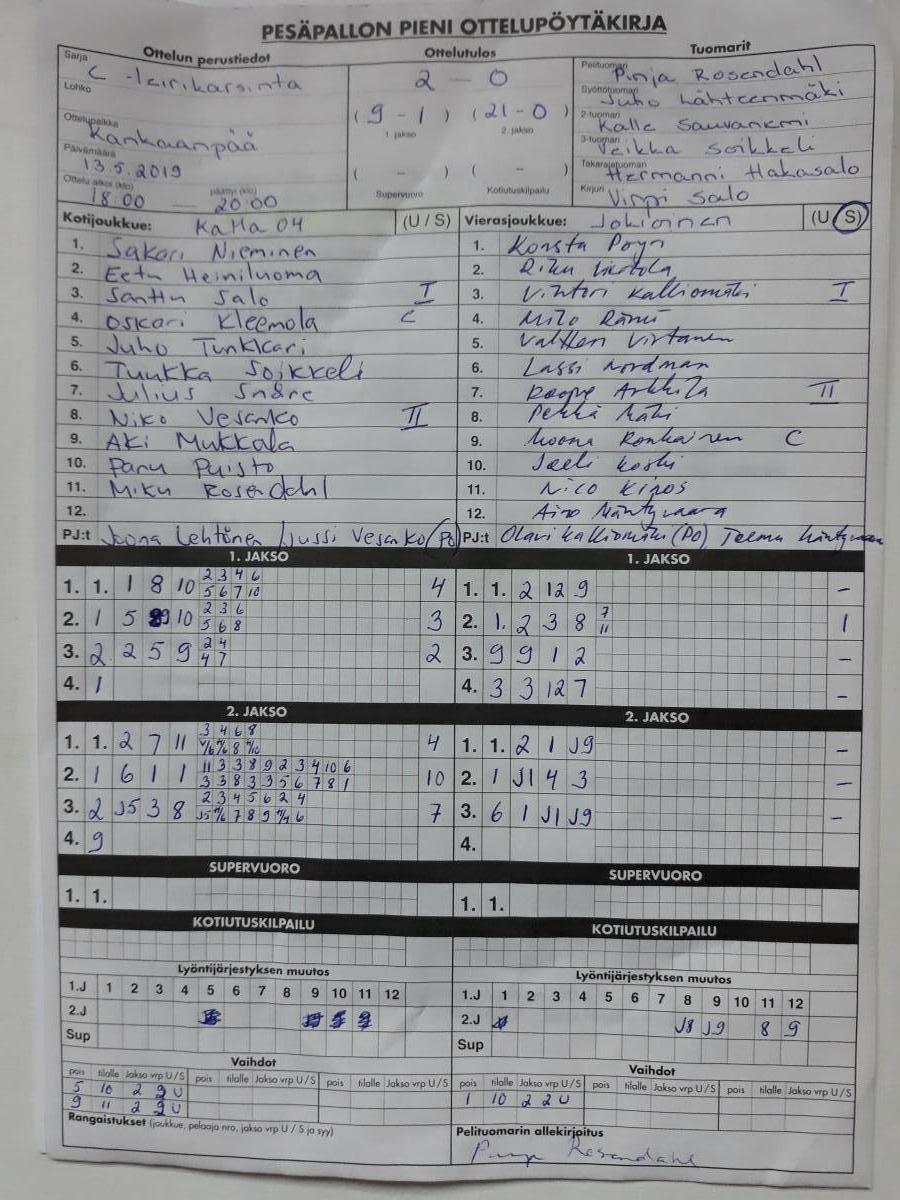 PESÄPALLON PIENI OTTELUPÖYTÄKIRJA
Ottelun perustiedot Ottelutulos Tuomarit
Sarja C -leirikarsinta 2 – 0 Pelituomari Pinja Rosendahl
Lohko Syöttötuomari Juho Lähteenmäki
(9 - 1) (21 - 0)
1. jakso 2. jakso
Ottelupaikka Kankaanpää 2-tuomari Kalle Sauvaniemi
3-tuomari Veikka Soikkeli
Päivämäärä 13.5.2019 ( - ) ( - ) Takarajatuomari Hermanni Hakasalo
Ottelu alkoi (klo) 18:00 päättyi (klo) 20:00 Supervuoro Kotiutuskilpailu Kirjuri Virpi Salo
Kotijoukkue: KaMa 04 (U / S) Vierasjoukkue: Jokioinen (U / S)
1. Sakari Nieminen 1. Konsta
2. Eetu Heiniluoma 2. Riku
3. Santtu Salo I 3. Vihtori Kalliomäki I
4. Oskari Kleemola C 4. Milo Rämö
5. Juho Tunkkari 5. Valtteri Virtanen
6. Tuukka Soikkeli 6. Lassi Nordman
7. Julius Snåre 7. Roope II
8. Niko Vesanko II 8. Pekka Mäki
9. Aki Mukkala 9. Noona Ronkainen C
10. Panu Puisto 10. Jaeli Koski
11. Miku Rosendahl 11. Nico
12. 12. Aino Mäntyvaara
PJ:t Joona Lehtonen / Jussi Vesanko (Po) PJ:t Olavi Kalliomäki (Po), Teemu
1. JAKSO 1. JAKSO
2 3 4 6
1. 1. 1 8 10 5 6 7 10 4 1. 1. 2 12 9 –
2 3 6 7
2. 1 5 10 5 6 8 3 2. 1. 2 3 8 11 1
2 4
3. 2 2 5 9 4 7 2 3. 9 9 1 2 –
4. 1 4. 3 3 12 7 –
2. JAKSO 2. JAKSO
3 4 6 8
1. 1. 2 7 11 8 4 1. 1. 2 1 J9 –
11 3 3 8 9 2 3 4 10 6
2. 1 6 1 1 3 3 8 3 3 5 6 7 8 1 10 2. 1 J1 4 3 –
2 3 4 5 6 2 4
3. 2 J5 3 8 J5 7 8 9 6 7 3. 6 1 J1 J9 –
4. 9 4.
SUPERVUORO SUPERVUORO
1. 1. 1. 1.
KOTIUTUSKILPAILU KOTIUTUSKILPAILU
Lyöntijärjestyksen muutos Lyöntijärjestyksen muutos
1.J 1 2 3 4 5 6 7 8 9 10 11 12 1.J 1 2 3 4 5 6 7 8 9 10 11 12
2.J 2.J J8 J9 8 9
Sup Sup
Vaihdot Vaihdot
pois tilalle Jakso vrp U / S pois tilalle Jakso vrp U / S pois tilalle Jakso vrp U / S pois tilalle Jakso vrp U / S pois tilalle Jakso vrp U / S pois tilalle Jakso vrp U / S
5 10 2 3 U 1 10 2 2 U
9 11 2 3 U
Rangaistukset (joukkue, pelaaja nro, jakso vrp U / S ja syy) Pelituomarin allekirjoitus
Pinja Rosendahl